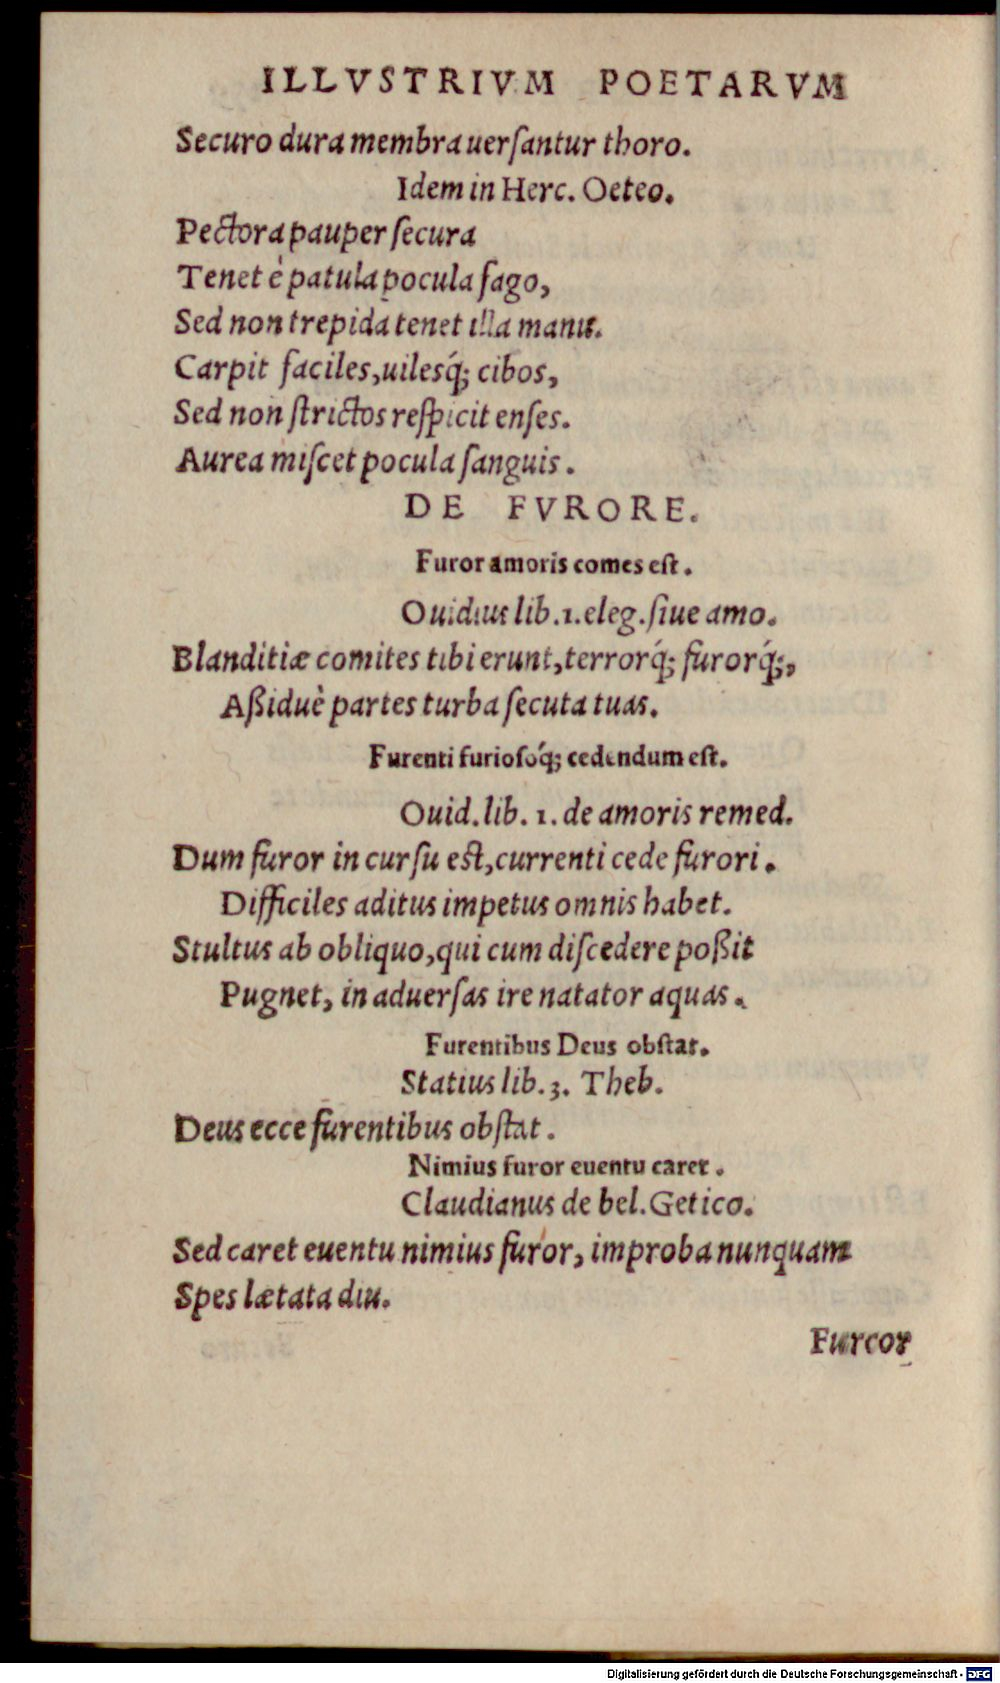 ILLVSTRIVM POETARVM
Securo dura membra uerſantur thoro.
Idem in Herc. Oeteo.
Pectora pauper ſecura
Tenet è patula pocula fago,
Sed non trepida tenet illa manu.
Carpit faciles,uilesq́; cibos,
Sed non ſtrictos reſpicit enſes.
Aurea miſcet pocula ſanguis.
DE FVRORE.
Furor amoris comes eſt.
Ouidius lib.1.eleg.ſiue amo.
Blanditiæ comites tibi erunt,terrorq́; furorq́;,
Aßiduè partes turba ſecuta tuas.
Furenti furioſoq́; cedendum eſt.
Ouid.lib. 1. de amoris remed.
Dum furor in curſu eſt,currenti cede furori.
Difficiles aditus impetus omnis habet.
Stultus ab obliquo,qui cum diſcedere poßit
Pugnet, in aduerſas ire natator aquas.
Furentibus Deus obſtat.
Statius lib.3. Theb.
Deus ecce furentibus obſtat.
Nimius furor euentu caret.
Claudianus de bel.Getico.
Sed caret euentu nimius furor, improba nunquam
Spes lætata diu.
Furcor
Digitalisierung gefördert durch die Deutsche Forschungsgemeinschaft - DFG